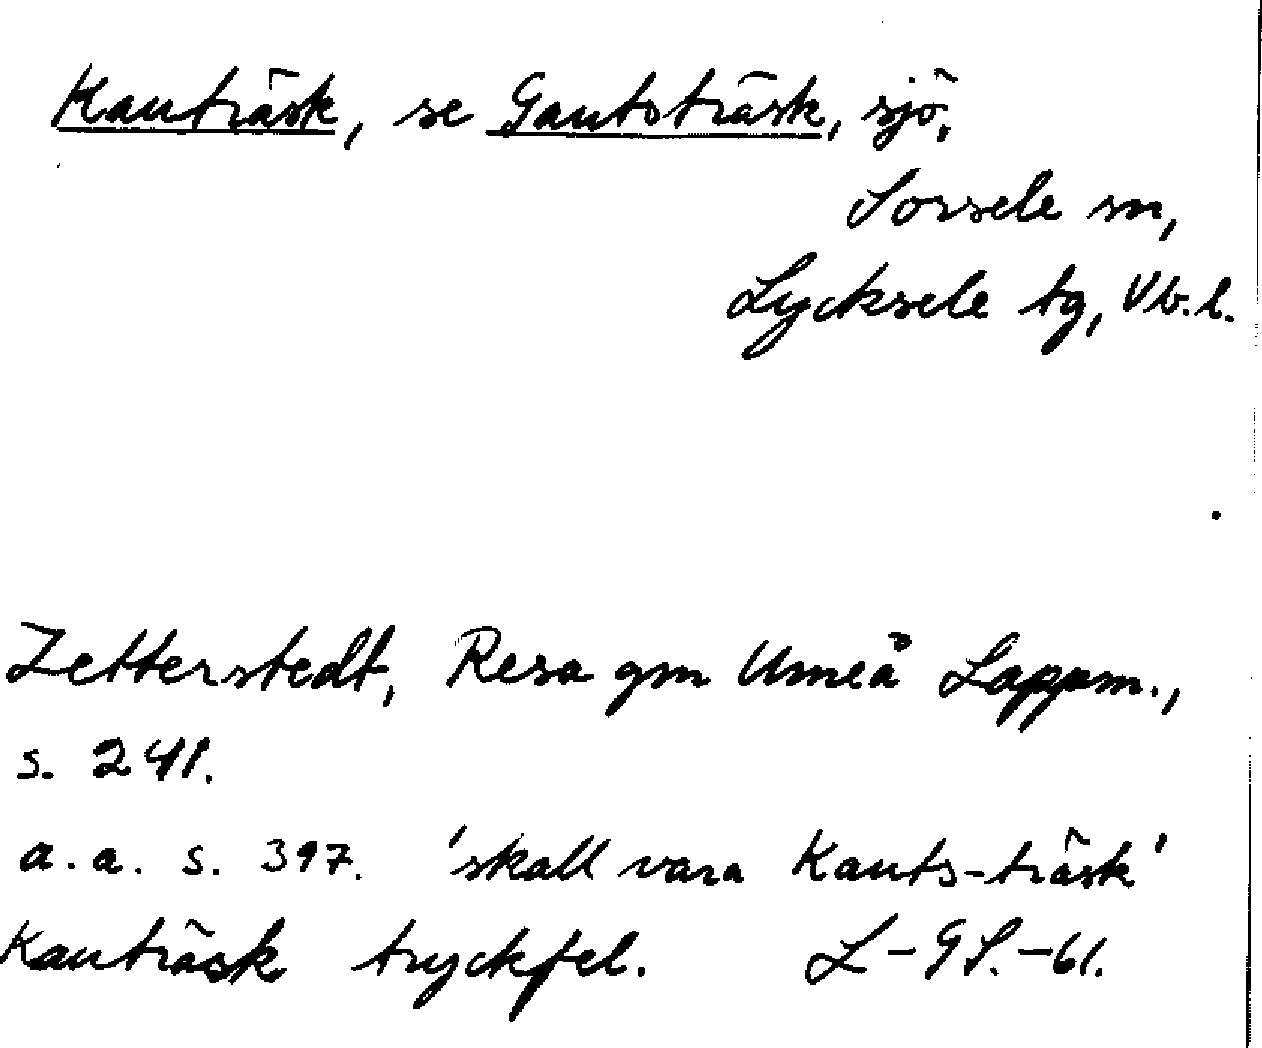 Kauträsk, se Gautsträsk, sjö,
Sorsele sn,
Lycksele tg, Vb. l.
Zetterstedt, Resa gm Umeå Lappm.,
s. 241.
a.a. s. 397. 'skall vara Kauts-träsk'
Kauträsk tryckfel. L-GS.-61.